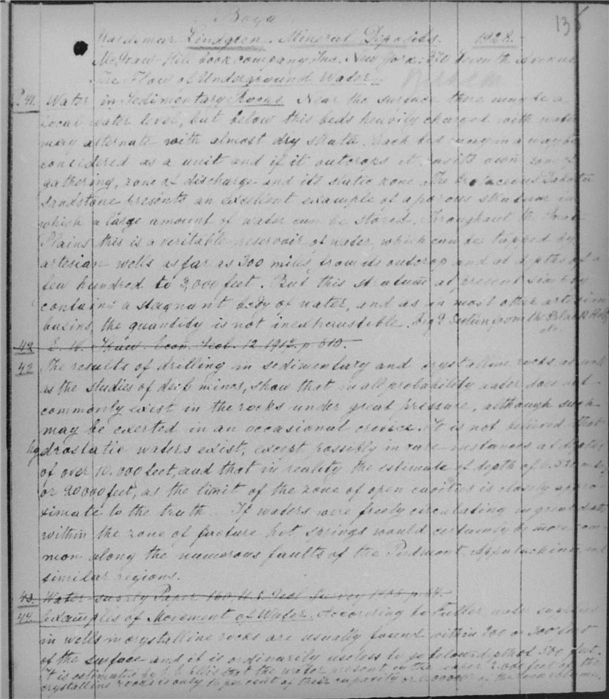 135
Waldemar Lindgren Mineral Deposits. 1928.
McGraw Hill book company Inc. New York. 370 Seventh Avenue
The Flow of Underground Water.
41. Water in Sedimentary Rocks. Near the surface there may be a
local water level, but below this beds heavily charged with water
may alternate with almost dry strata. Each bed carrying may be
considered as a unit and if it outcrops it has its own zone of
gathering, zone of discharge and its static zone. The Cretaceous Dakota
sandstone presents an excellent example of a porous stratum in
which a large amount of water can be stored. Throughout the Great
Plains this is a veritable reservoir of water, which can be tapped by
artesian wells as far as 300 miles from its outcrop and at depths of a
few hundred to 3,000 feet. But this stratum at present simply
contains a stagnant body of water, and as in most other artesian
basins, the quantity is not inexhaustible. Fig 9 Section from the Black Hills
42 Econ. Geol. 12 1912. p
42 The results of drilling in sedimentary and crystalline rocks as well
as the studies of deep mines, show that in all probability water does not
commonly exist in the rocks under great pressure, although such
may be exerted in an occasional crevice. It is not believed that
hydrostatic waters exist, except possibly in rare instances at depths
of over 10,000 feet, and that in reality the estimate of depth of
or 20000 feet, as the limit of the zone of open cavities is closely approximate
to the truth. If waters were freely circulating in great
within the zone of fracture hot springs would certainly be more common
along the numerous faults of the Piedmont Appalachian and
similar regions.
43. Water Supply Paper 160 U.S. Geol Survey
44 Examples of Movement of Water. According to Fuller most supplies
in wells in crystalline rocks are usually found within 200 or 300 feet
of the surface and it is ordinarily useless to go below depths of 500 feet.
It is estimated by Ellis that the water present in the upper feet of the
crystalline rocks is only per cent of their capacity